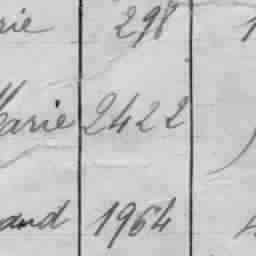 rie 298 1
Marie 2422
and 1964 4